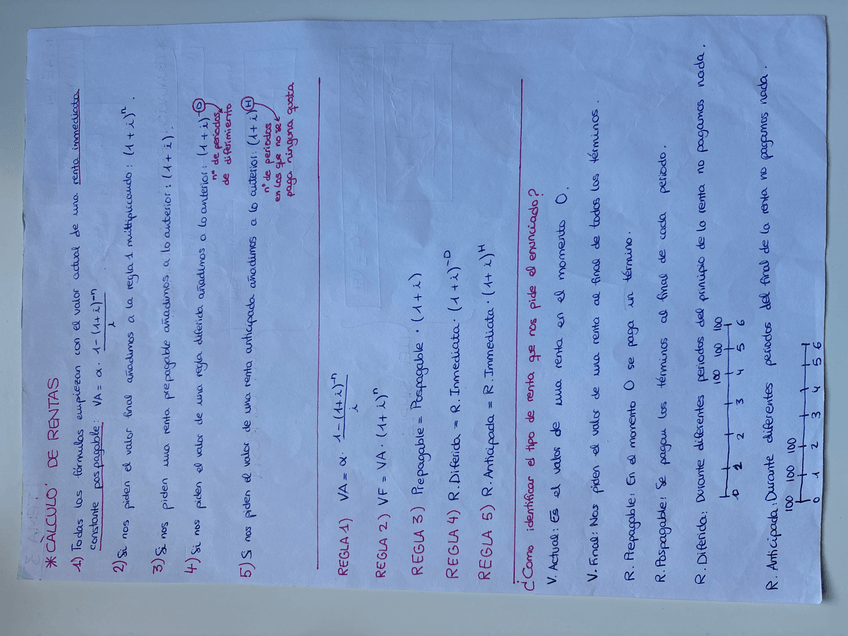 * CÀLCULO DE RENTAS
1) Todas las fórmulas empiezan con el valor actual de una renta inmediata
constante pospagable: VA = a · 1 - (1+i)⁻ⁿ / i
2) Si nos piden el valor final añadimos a la regla 1 multiplicando: (1 + i)ⁿ.
3) Si nos piden una renta prepagable añadimos a lo anterior: (1 + i).
4) Si nos piden el valor de una regla diferida añadimos a lo anterior: (1 + i)⁻ᴰ
nº de periodos
de diferimiento
5) S nos piden el valor de una renta anticipada añadimos a lo anterior: (1 + i)ᴴ
nº de periodos
en los que no se
paga ninguna quota
REGLA 1) VA = a · 1 - (1+i)⁻ⁿ / i
REGLA 2) VF = VA · (1+i)ⁿ
REGLA 3) Prepagable = Pospagable · (1 + i)
REGLA 4) R. Diferida = R. Inmediata · (1 + i)⁻ᴰ
REGLA 5) R. Anticipada = R. Inmediata · (1 + i)ᴴ
¿Como identificar el tipo de renta que nos pide el enunciado?
V. Actual: Es el valor de una renta en el momento 0.
V. Final: Nos piden el valor de una renta al final de todos los términos.
R. Prepagable: En el momento 0 se paga un término.
R. Pospagable: Se pagan los términos al final de cada periodo.
R. Diferida: Durante diferentes periodos del principio de la renta no pagamos nada.
100 100 100
0 1 2 3 4 5 6
R. Anticipada: Durante diferentes periodos del final de la renta no pagamos nada.
100 100 100
0 1 2 3 4 5 6